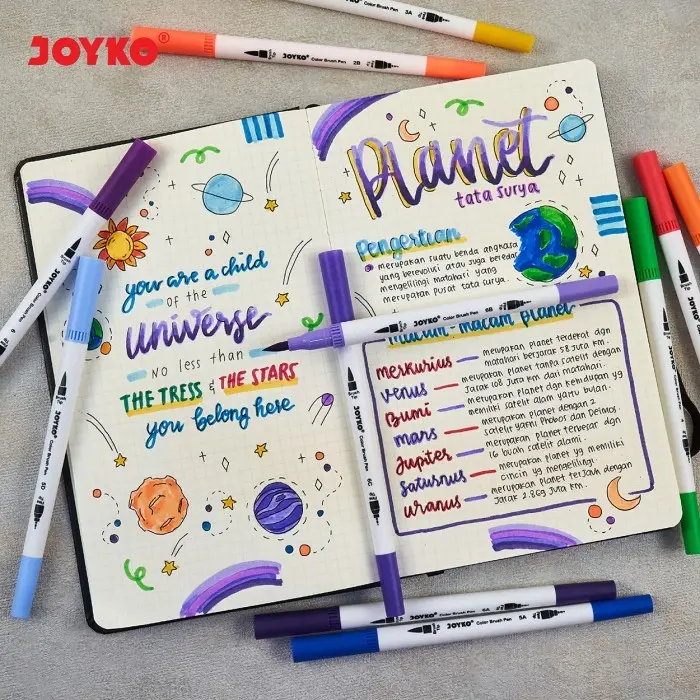 JOYKO®
JOYKO Color Brush Pen 3A
JOYKO Color Brush Pen 2B
Planet
tata surya
you are a child
of the
universe
no less than
THE TRESS & THE STARS
you belong here
Pengertian
merupakan suatu benda angkasa
yang berevolusi atau juga beredar
mengelilingi matahari yang
merupakan pusat tata surya.
JOYKO Color Brush Pen 6B
Macam-macam planet
merkurius — merupakan planet terdekat dgn
matahari berjarak 58 juta km.
venus — merupakan planet tanpa satelit dengan
jarak 108 juta km dari matahari.
Bumi — merupakan planet dgn kehidupan yg
memiliki satelit alam yaitu bulan.
mars — merupakan planet dengan 2
satelit yaitu Phobos dan Deimos.
Jupiter — merupakan planet terbesar dgn
16 buah satelit alami.
Saturnus — merupakan planet yg memiliki
cincin yg mengelilingi.
uranus — merupakan planet terjauh dengan
jarak 2.869 juta km.
JOYKO
JOYKO
JOYKO
JOYKO Color Brush Pen 6A
JOYKO Color Brush Pen 5A